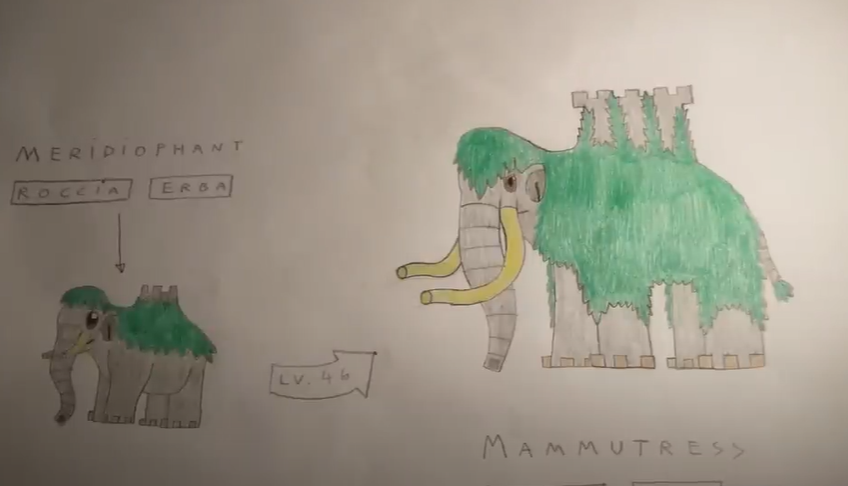 MERIDIOPHANT
ROCCIA ERBA
LV. 46
MAMMUTRESS